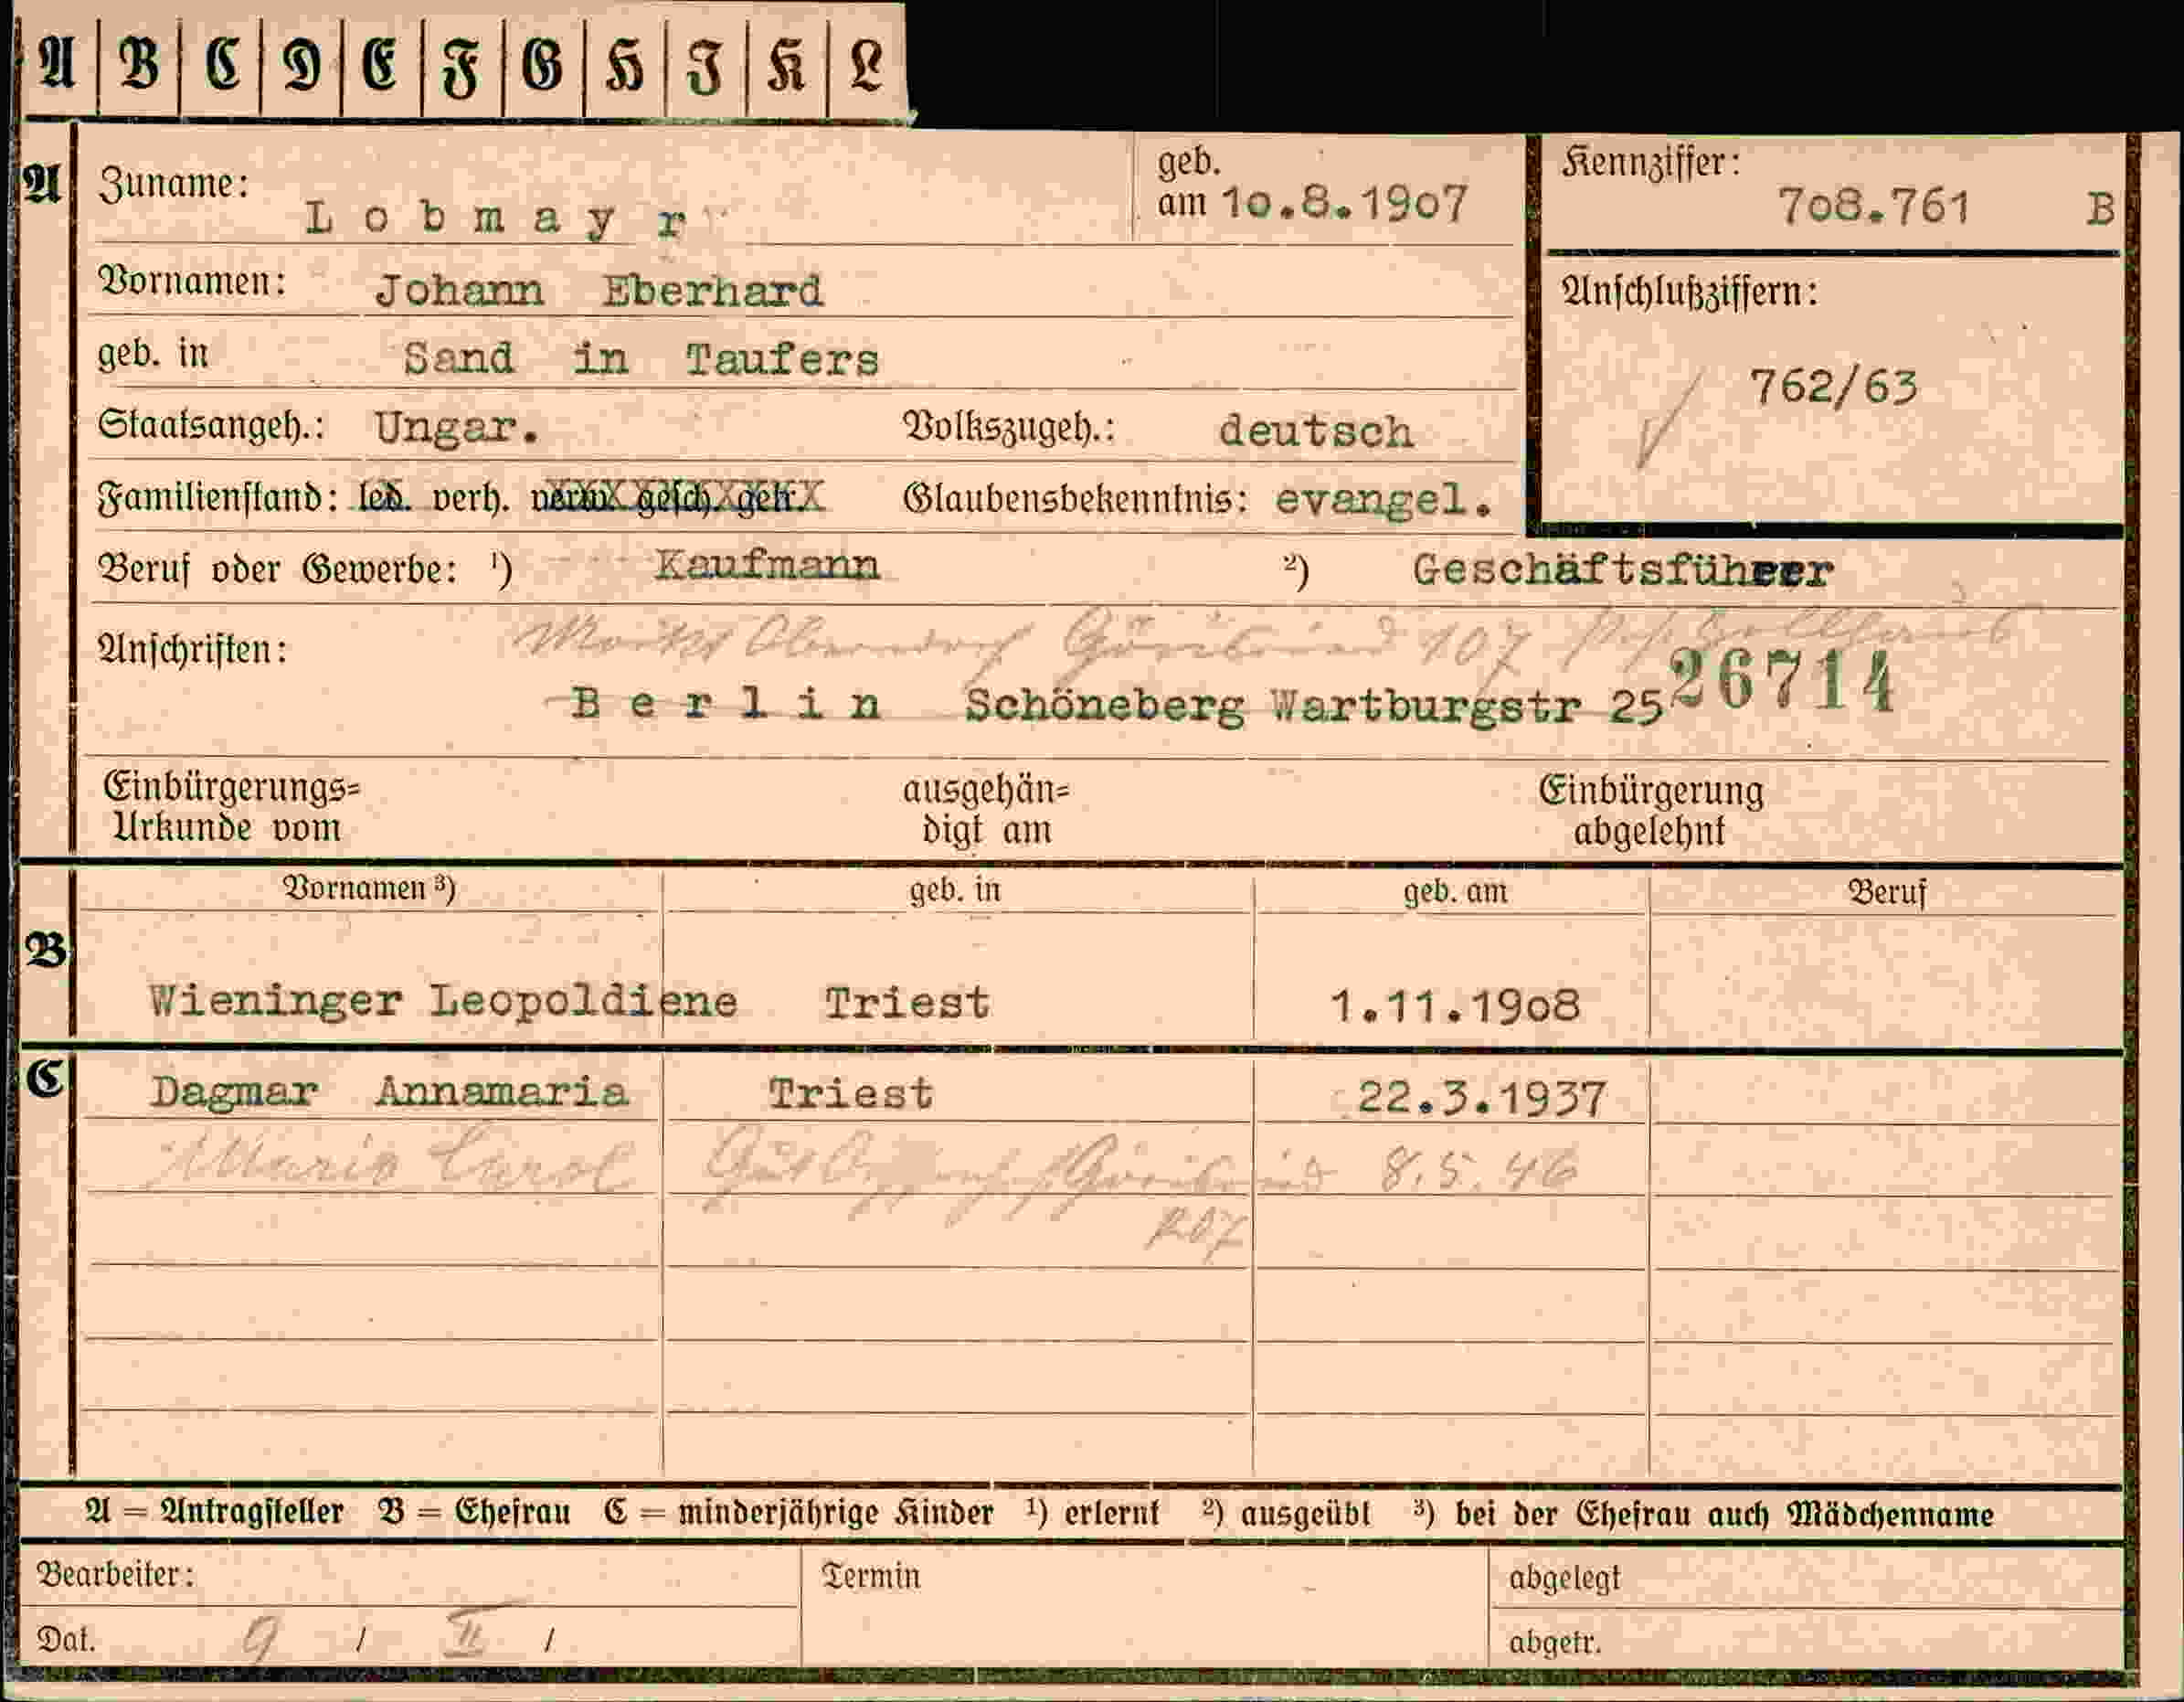 A B C D E F G H I K L
A Zuname: Lobmayr geb. am 10.8.1907 Kennziffer: 708.761 B
Vornamen: Johann Eberhard Anschlußziffern:
geb. in Sand in Taufers 762/63
Staatsangeh.: Ungar. Volkszugeh.: deutsch
Familienstand: led. verh. verw. gesch. getr. Glaubensbekenntnis: evangel.
Beruf oder Gewerbe: ¹) Kaufmann ²) Geschäftsführer
Anschriften: 107
Berlin Schöneberg Wartburgstr 25 26714
Einbürgerungs= ausgehän= Einbürgerung
Urkunde vom digt am abgelehnt
Vornamen ³) geb. in geb. am Beruf
B
Wieninger Leopoldiene Triest 1.11.1908
C Dagmar Annamaria Triest 22.3.1937
Mario Carol Gut 8.5.46
107
A = Antragsteller B = Ehefrau C = minderjährige Kinder ¹) erlernt ²) ausgeübt ³) bei der Ehefrau auch Mädchenname
Bearbeiter: Termin abgelegt
Dat. 9 / II / abgetr.